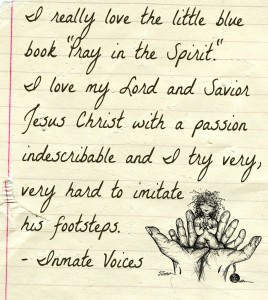 I really love the little blue
book "Pray in the Spirit."
I love my Lord and Savior
Jesus Christ with a passion
indescribable and I try very,
very hard to imitate
his footsteps.
- Inmate Voices